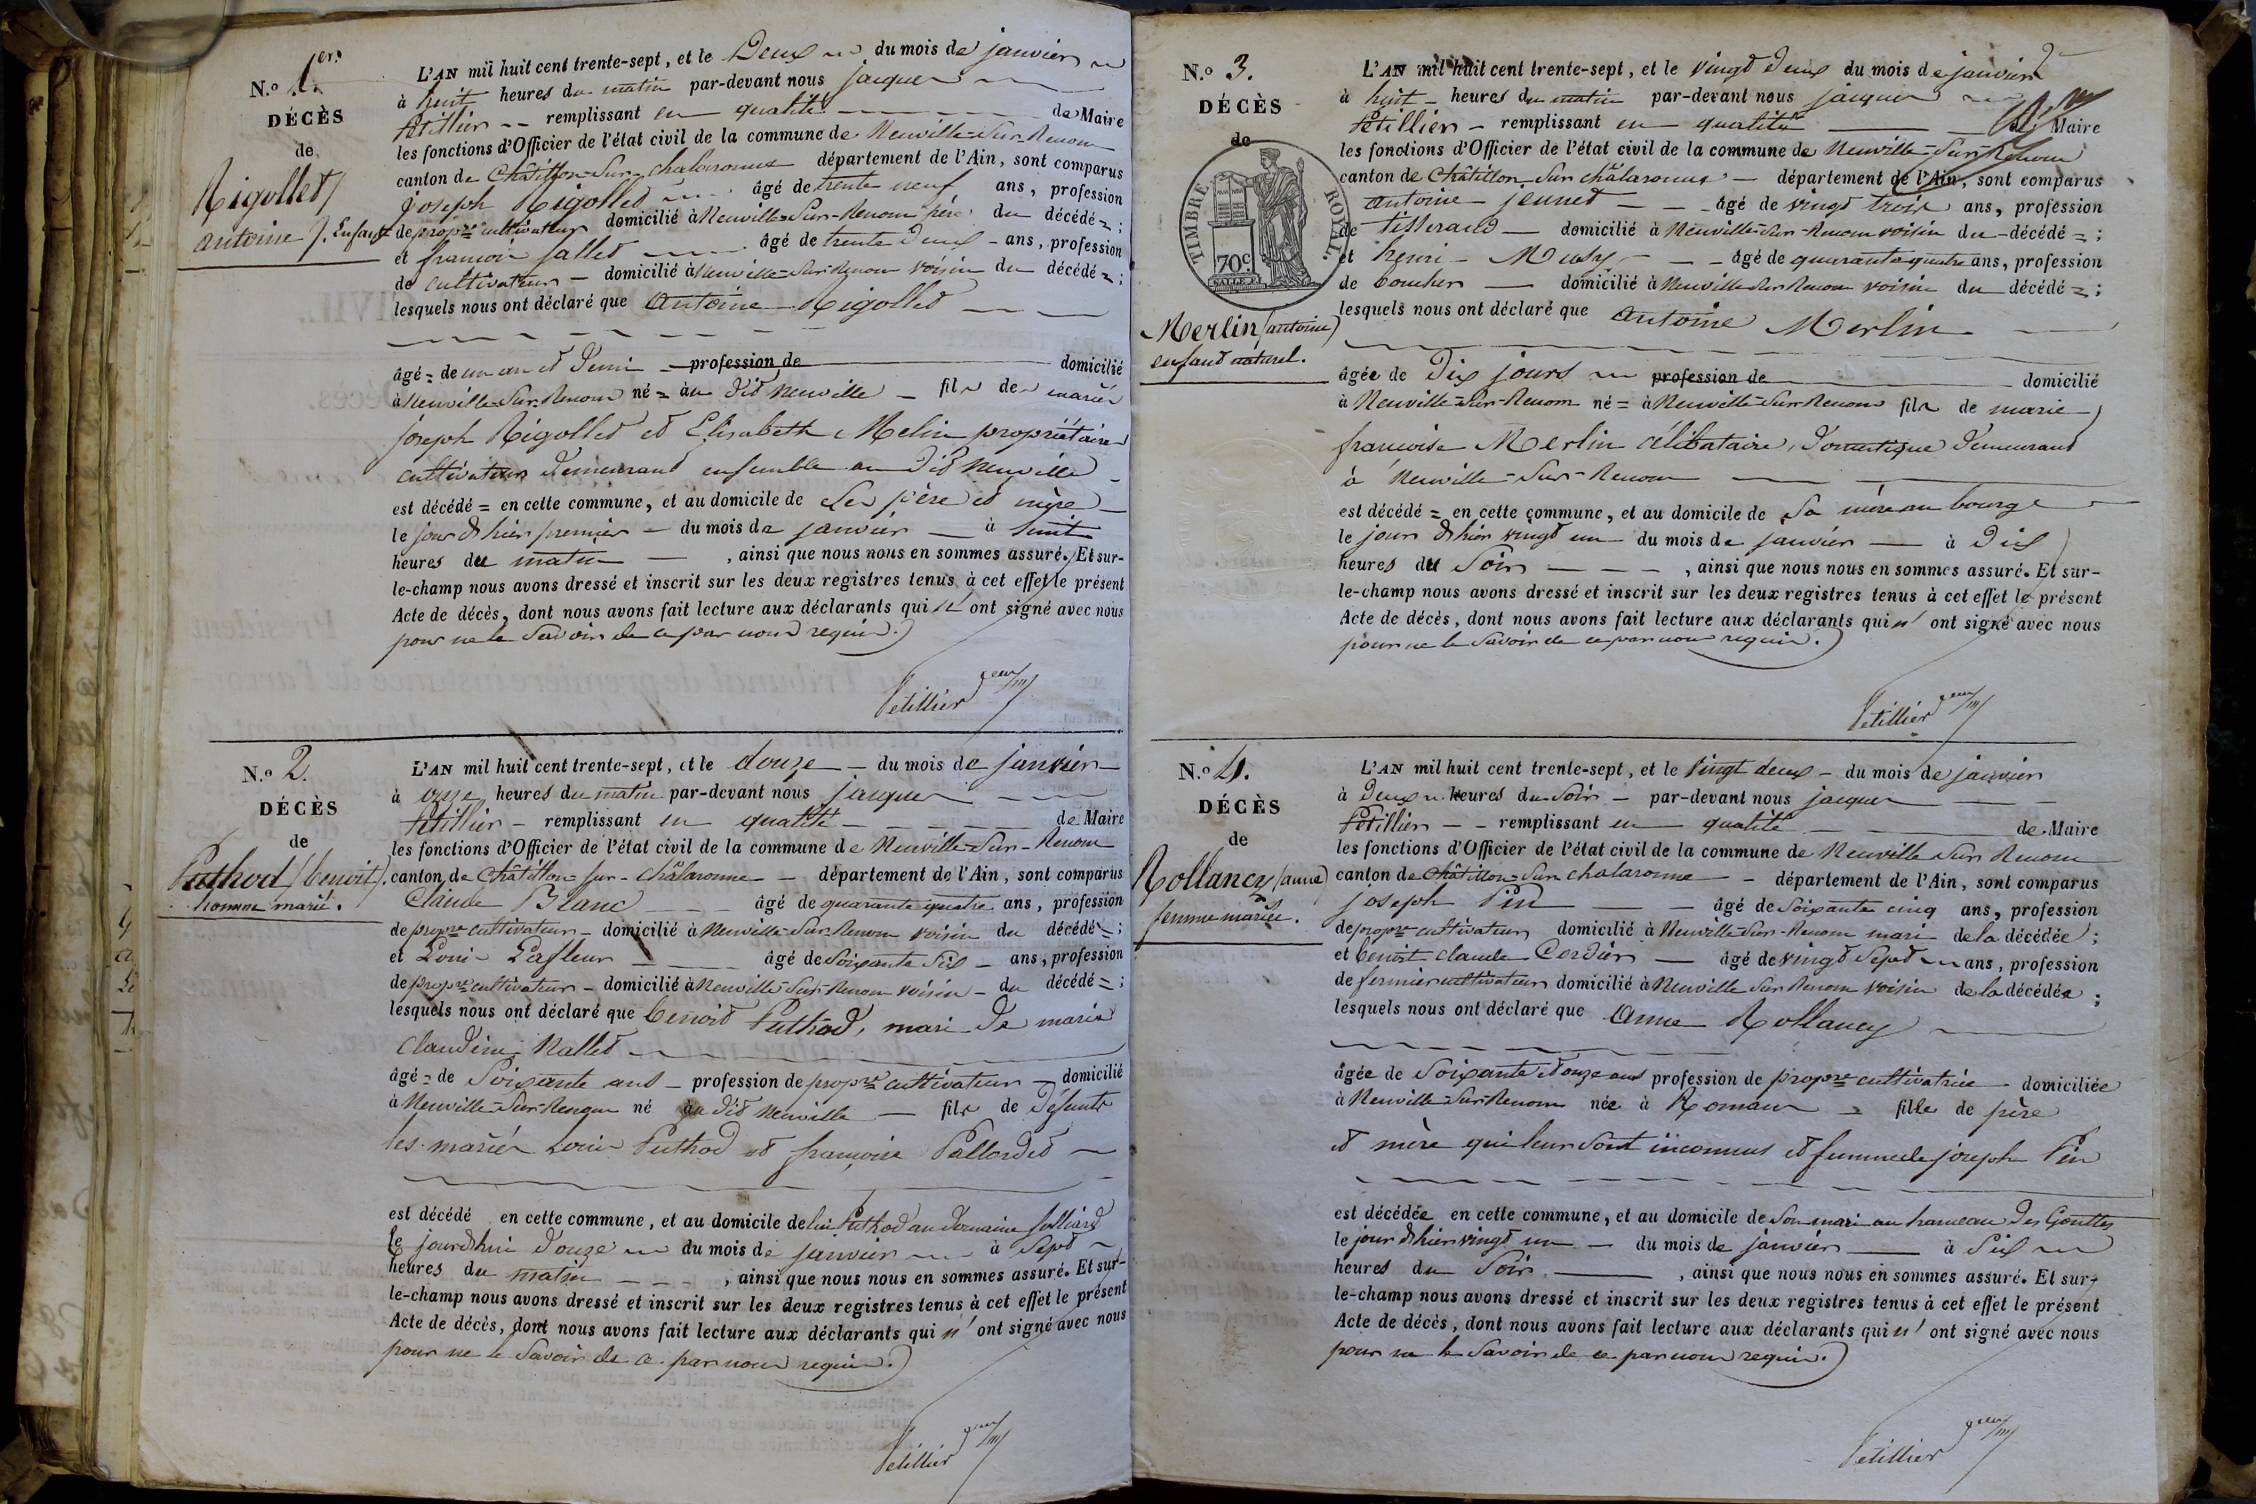 N.o 1.er
DÉCÈS
de
Rigollet
antoine /. Enfant
L'AN mil huit cent trente-sept, et le Deux du mois de janvier
à huit heures du matin par-devant nous jacques
Pétillier remplissant en qualité de Maire
les fonctions d'Officier de l'état civil de la commune de Neuville-Sur-Renom
canton de Châtillon-Sur-chalaronne département de l'Ain, sont comparus
joseph Rigollet âgé de trente neuf ans, profession
de propre cultivateur domicilié à Neuville-Sur-Renom père du décédé = ;
et françois fallet âgé de trente Deux - ans, profession
de cultivateur - domicilié à Neuville-Sur-Renom voisin du décédé = ;
lesquels nous ont déclaré que Antoine Rigollet
âgé = de un an et Demi profession de domicilié
à Neuville-Sur-Renom né = au Dit Neuville fils de mariés
joseph Rigollet et Elisabeth Melin propriétaires
cultivateurs Demeurant ensemble au Dit Neuville
est décédé = en cette commune, et au domicile de Ses père et mère
le jour d'hier premier du mois de janvier à huit
heures du matin , ainsi que nous nous en sommes assuré. Et sur-
le-champ nous avons dressé et inscrit sur les deux registres tenus à cet effet le présent
Acte de décès, dont nous avons fait lecture aux déclarants qui n' ont signé avec nous
pour ne le Savoir de ce par nous requis.
Petillier
N.o 2.
DÉCÈS
de
Puthod (benoit).
homme marié.
L'AN mil huit cent trente-sept, et le douze du mois de janvier
à onze heures du matin par-devant nous jacques
Pétillier - remplissant en qualité de Maire
les fonctions d'Officier de l'état civil de la commune de Neuville-Sur-Renom
canton de Châtillon-sur-Châlaronne département de l'Ain, sont comparus
Claude Blanc âgé de quarante quatre ans, profession
de propre cultivateur - domicilié à Neuville-Sur-Renom voisin du décédé = ;
et Louis Lafleur âgé de Soixante Six - ans, profession
de propre cultivateur - domicilié à Neuville-Sur-Renom voisin - du décédé = ;
lesquels nous ont déclaré que benoit Puthod, mari De marie
Claudine Nallet
âgé = de Soixante ans - profession de propre cultivateur domicilié
à Neuville-Sur-Renom né au Dit Neuville fils de Défunts
les mariés Louis Puthod et françoise Pallordet
est décédé en cette commune, et au domicile de lui Puthod au Domaine
le jourdhui Douze du mois de janvier à Sept
heures du matin , ainsi que nous nous en sommes assuré. Et sur-
le-champ nous avons dressé et inscrit sur les deux registres tenus à cet effet le présent
Acte de décès, dont nous avons fait lecture aux déclarants qui n' ont signé avec nous
pour ne le Savoir de ce par nous requis.
Petillier
N.o 3.
DÉCÈS
de
TIMBRE ROYAL.
70c.
Merlin (antoine)
enfant naturel.
L'AN mil huit cent trente-sept, et le vingt Deux du mois de janvier
à huit - heures du matin par-devant nous jacques
Pétillier - remplissant en qualité de Maire
les fonctions d'Officier de l'état civil de la commune de Neuville-Sur-Renom
canton de Châtillon-Sur châlaronne - département de l'Ain, sont comparus
antoine jeunet - âgé de vingt trois ans, profession
de tisserand - domicilié à Neuville-Sur-Renom voisin du décédé = ;
et henri - - âgé de quarante quatre ans, profession
de boucher domicilié à Neuville-Sur Renom voisin du décédé = ;
lesquels nous ont déclaré que Antoine Merlin
âgée de Dix jours profession de domicilié
à Neuville-Sur-Renom né = à Neuville-Sur-Renom fils de marie
françoise Merlin célibataire, Domestique Demeurant
à Neuville-Sur-Renom
est décédé = en cette commune, et au domicile de Sa mère au bourg
le jour d'hier vingt un du mois de janvier à Dix
heures du Soir , ainsi que nous nous en sommes assuré. Et sur-
le-champ nous avons dressé et inscrit sur les deux registres tenus à cet effet le présent
Acte de décès, dont nous avons fait lecture aux déclarants qui n' ont signé avec nous
pour ne le Savoir de ce par nous requis.
Petillier
N.o 4.
DÉCÈS
de
Rollancy (anne)
femme mariée.
L'AN mil huit cent trente-sept, et le Vingt deux - du mois de janvier
à Deux heures du Soir - par-devant nous jacques
Pétillier - - remplissant en qualité de Maire
les fonctions d'Officier de l'état civil de la commune de Neuville Sur Renom
canton de Châtillon-Sur chalaronne - département de l'Ain, sont comparus
joseph Pin âgé de Soixante cinq ans, profession
de propre cultivateur domicilié à Neuville-Sur-Renom mari de la décédée ;
et benoit claude Cordier âgé de vingt Sept ans, profession
de fermier cultivateur domicilié à Neuville Sur Renom voisin de la décédée ;
lesquels nous ont déclaré que Anne Rollancy
âgée de Soixante Douze ans profession de propre cultivatrice domiciliée
à Neuville-Sur-Renom née à Romans = fille de père
et mère qui leur Sont inconnus et femme de joseph Pin
est décédée en cette commune, et au domicile de Son mari au hameau Des Gouttes
le jour d'hier vingt un du mois de janvier à Six
heures du Soir , ainsi que nous nous en sommes assuré. Et sur-
le-champ nous avons dressé et inscrit sur les deux registres tenus à cet effet le présent
Acte de décès, dont nous avons fait lecture aux déclarants qui n' ont signé avec nous
pour ne le Savoir de ce par nous requis.
Petillier